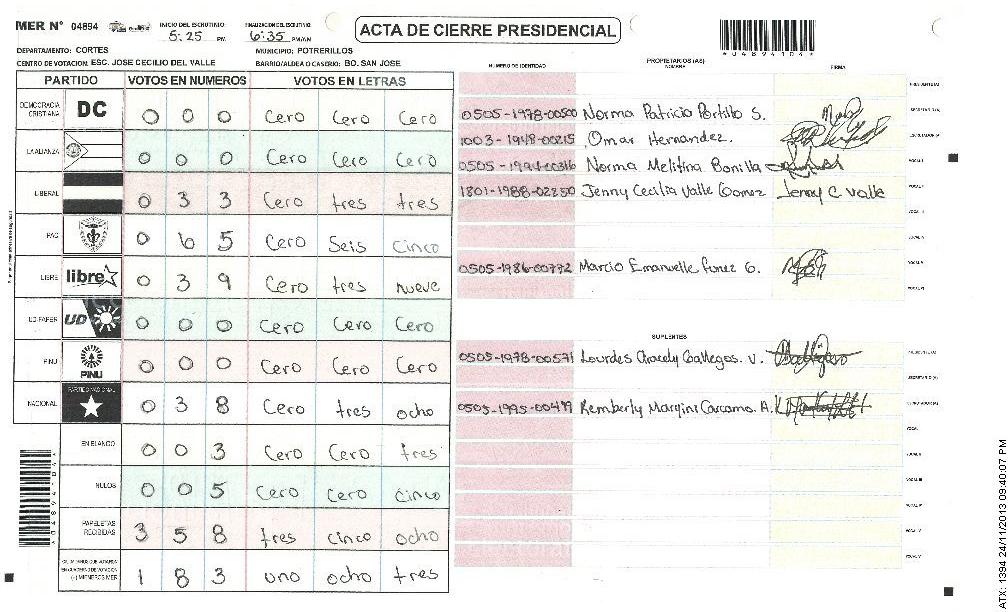 MER Nº 04894
INICIO DEL ESCRUTINIO
5:25 PM
FINALIZACION DEL ESCRUTINIO
6:35 PM/AM
ACTA DE CIERRE PRESIDENCIAL
*04894104*
DEPARTAMENTO: CORTES MUNICIPIO: POTRERILLOS
CENTRO DE VOTACION: ESC. JOSE CECILIO DEL VALLE BARRIO/ALDEA O CASERIO: BO. SAN JOSE
PARTIDO VOTOS EN NUMEROS VOTOS EN LETRAS
DEMOCRACIA CRISTIANA DC 0 0 0 Cero Cero Cero
LA ALIANZA 0 0 0 Cero Cero Cero
LIBERAL 0 3 3 Cero tres tres
PAC 0 6 5 Cero Seis Cinco
LIBRE libre 0 3 9 Cero tres nueve
UD-FAPER UD 0 0 0 Cero Cero Cero
PINU PINU 0 0 0 Cero Cero Cero
NACIONAL PARTIDO NACIONAL 0 3 8 Cero tres ocho
EN BLANCO 0 0 3 Cero Cero tres
NULOS 0 0 5 Cero Cero cinco
PAPELETAS RECIBIDAS 3 5 8 tres cinco ocho
1 8 3 uno ocho tres
NUMERO DE IDENTIDAD PROPIETARIOS (AS) NOMBRE FIRMA
PRESIDENTE (A)
0505-1978-00500 Norma Patricia Portillo S. SECRETARIO (A)
1003-1948-00215 Omar Hernandez. ESCRUTADOR (A)
0505-1994-00316 Norma Melitina Bonilla VOCAL I
1801-1988-02250 Jenny Cecilia Valle Gomez Jenny C. Valle
0505-1986-00772 Marcio Emanuelle Funez G.
SUPLENTES
0505-1978-00571 Lourdes Aracely Gallegos. V.
SECRETARIO (A)
0505-1995-00479 Kemberly Margini Carcamo. A.
VOCAL
*04894104*
ATX: 1394 24/11/2013 09:40:07 PM